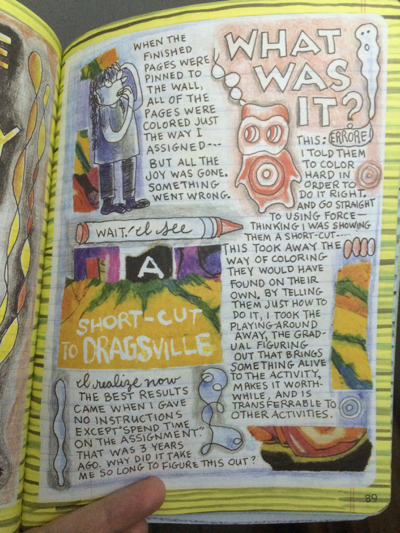 WHEN THE
FINISHED
PAGES WERE
PINNED TO
THE WALL,
ALL OF THE
PAGES WERE
COLORED JUST
THE WAY I
ASSIGNED---
BUT ALL THE
JOY WAS GONE.
SOMETHING
WENT WRONG.
WHAT
WAS
IT?
THIS: ERRORE
I TOLD THEM
TO COLOR
HARD IN
ORDER TO
DO IT RIGHT.
AND GO STRAIGHT
TO USING FORCE—
THINKING I WAS SHOWING
THEM A SHORT-CUT---
WAIT! I see
A
SHORT-CUT
TO DRAGSVILLE
THIS TOOK AWAY THE
WAY OF COLORING
THEY WOULD HAVE
FOUND ON THEIR
OWN. BY TELLING
THEM JUST HOW TO
DO IT, I TOOK THE
PLAYING-AROUND
AWAY, THE GRAD-
UAL FIGURING
OUT THAT BRINGS
SOMETHING ALIVE
TO THE ACTIVITY,
MAKES IT WORTH-
WHILE, AND IS
TRANSFERRABLE TO
OTHER ACTIVITIES.
I realize now
THE BEST RESULTS
CAME WHEN I GAVE
NO INSTRUCTIONS
EXCEPT "SPEND TIME
ON THE ASSIGNMENT."
THAT WAS 3 YEARS
AGO. WHY DID IT TAKE
ME SO LONG TO FIGURE THIS OUT?
89